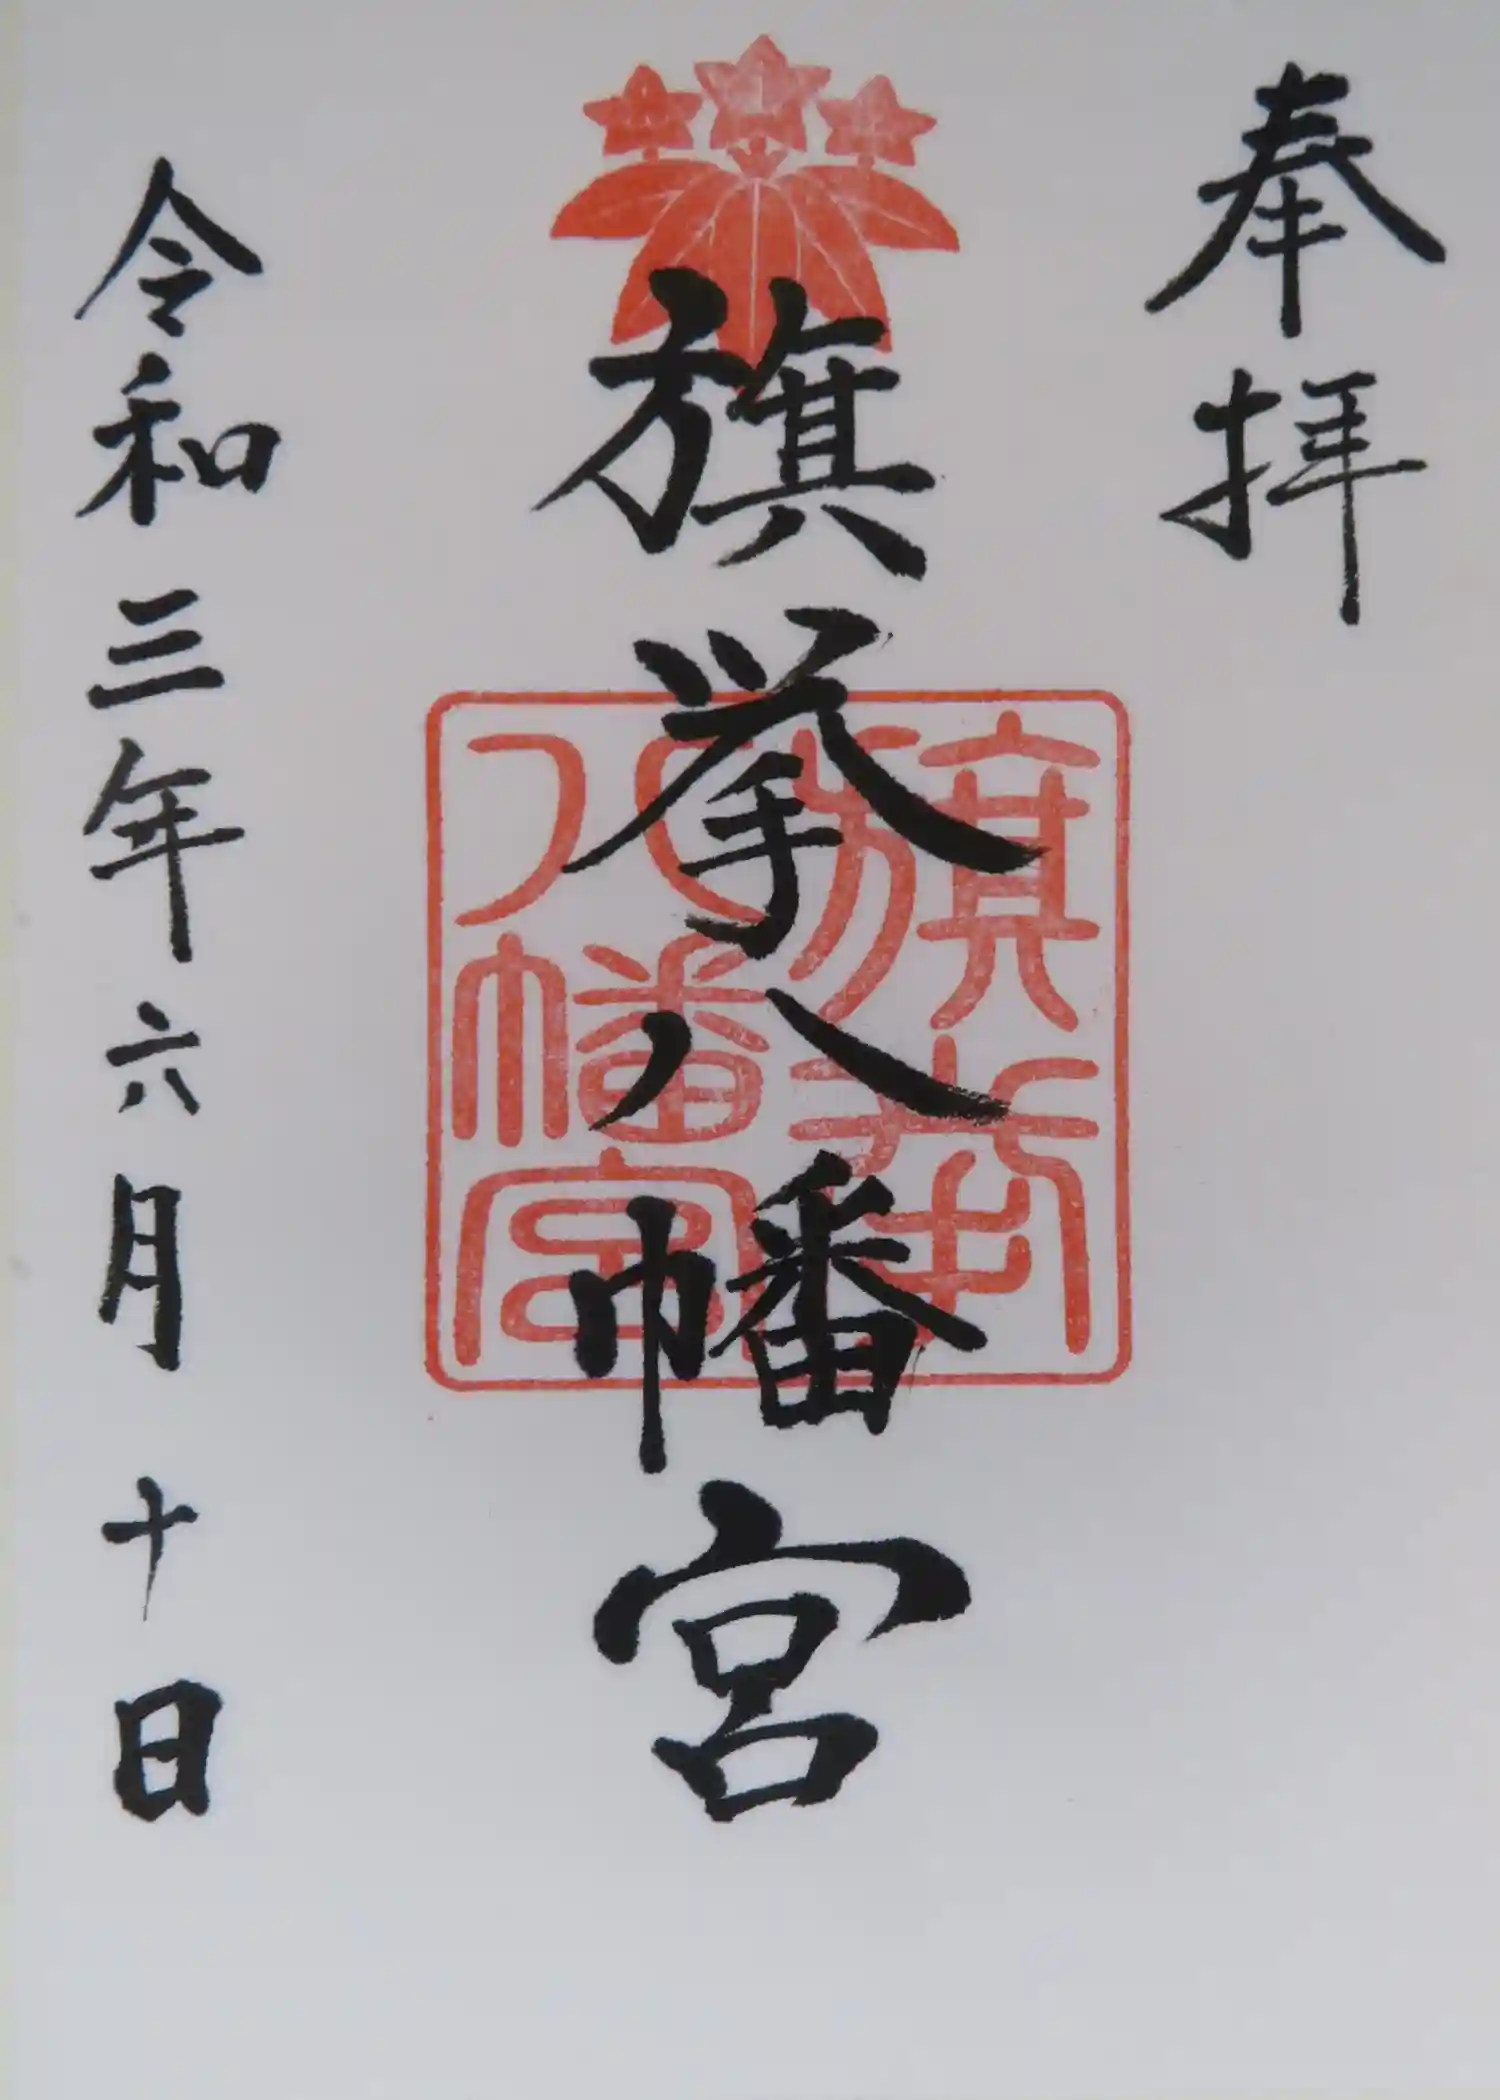 奉拝
旗挙八幡宮
旗挙
八幡宮
令和三年六月十日